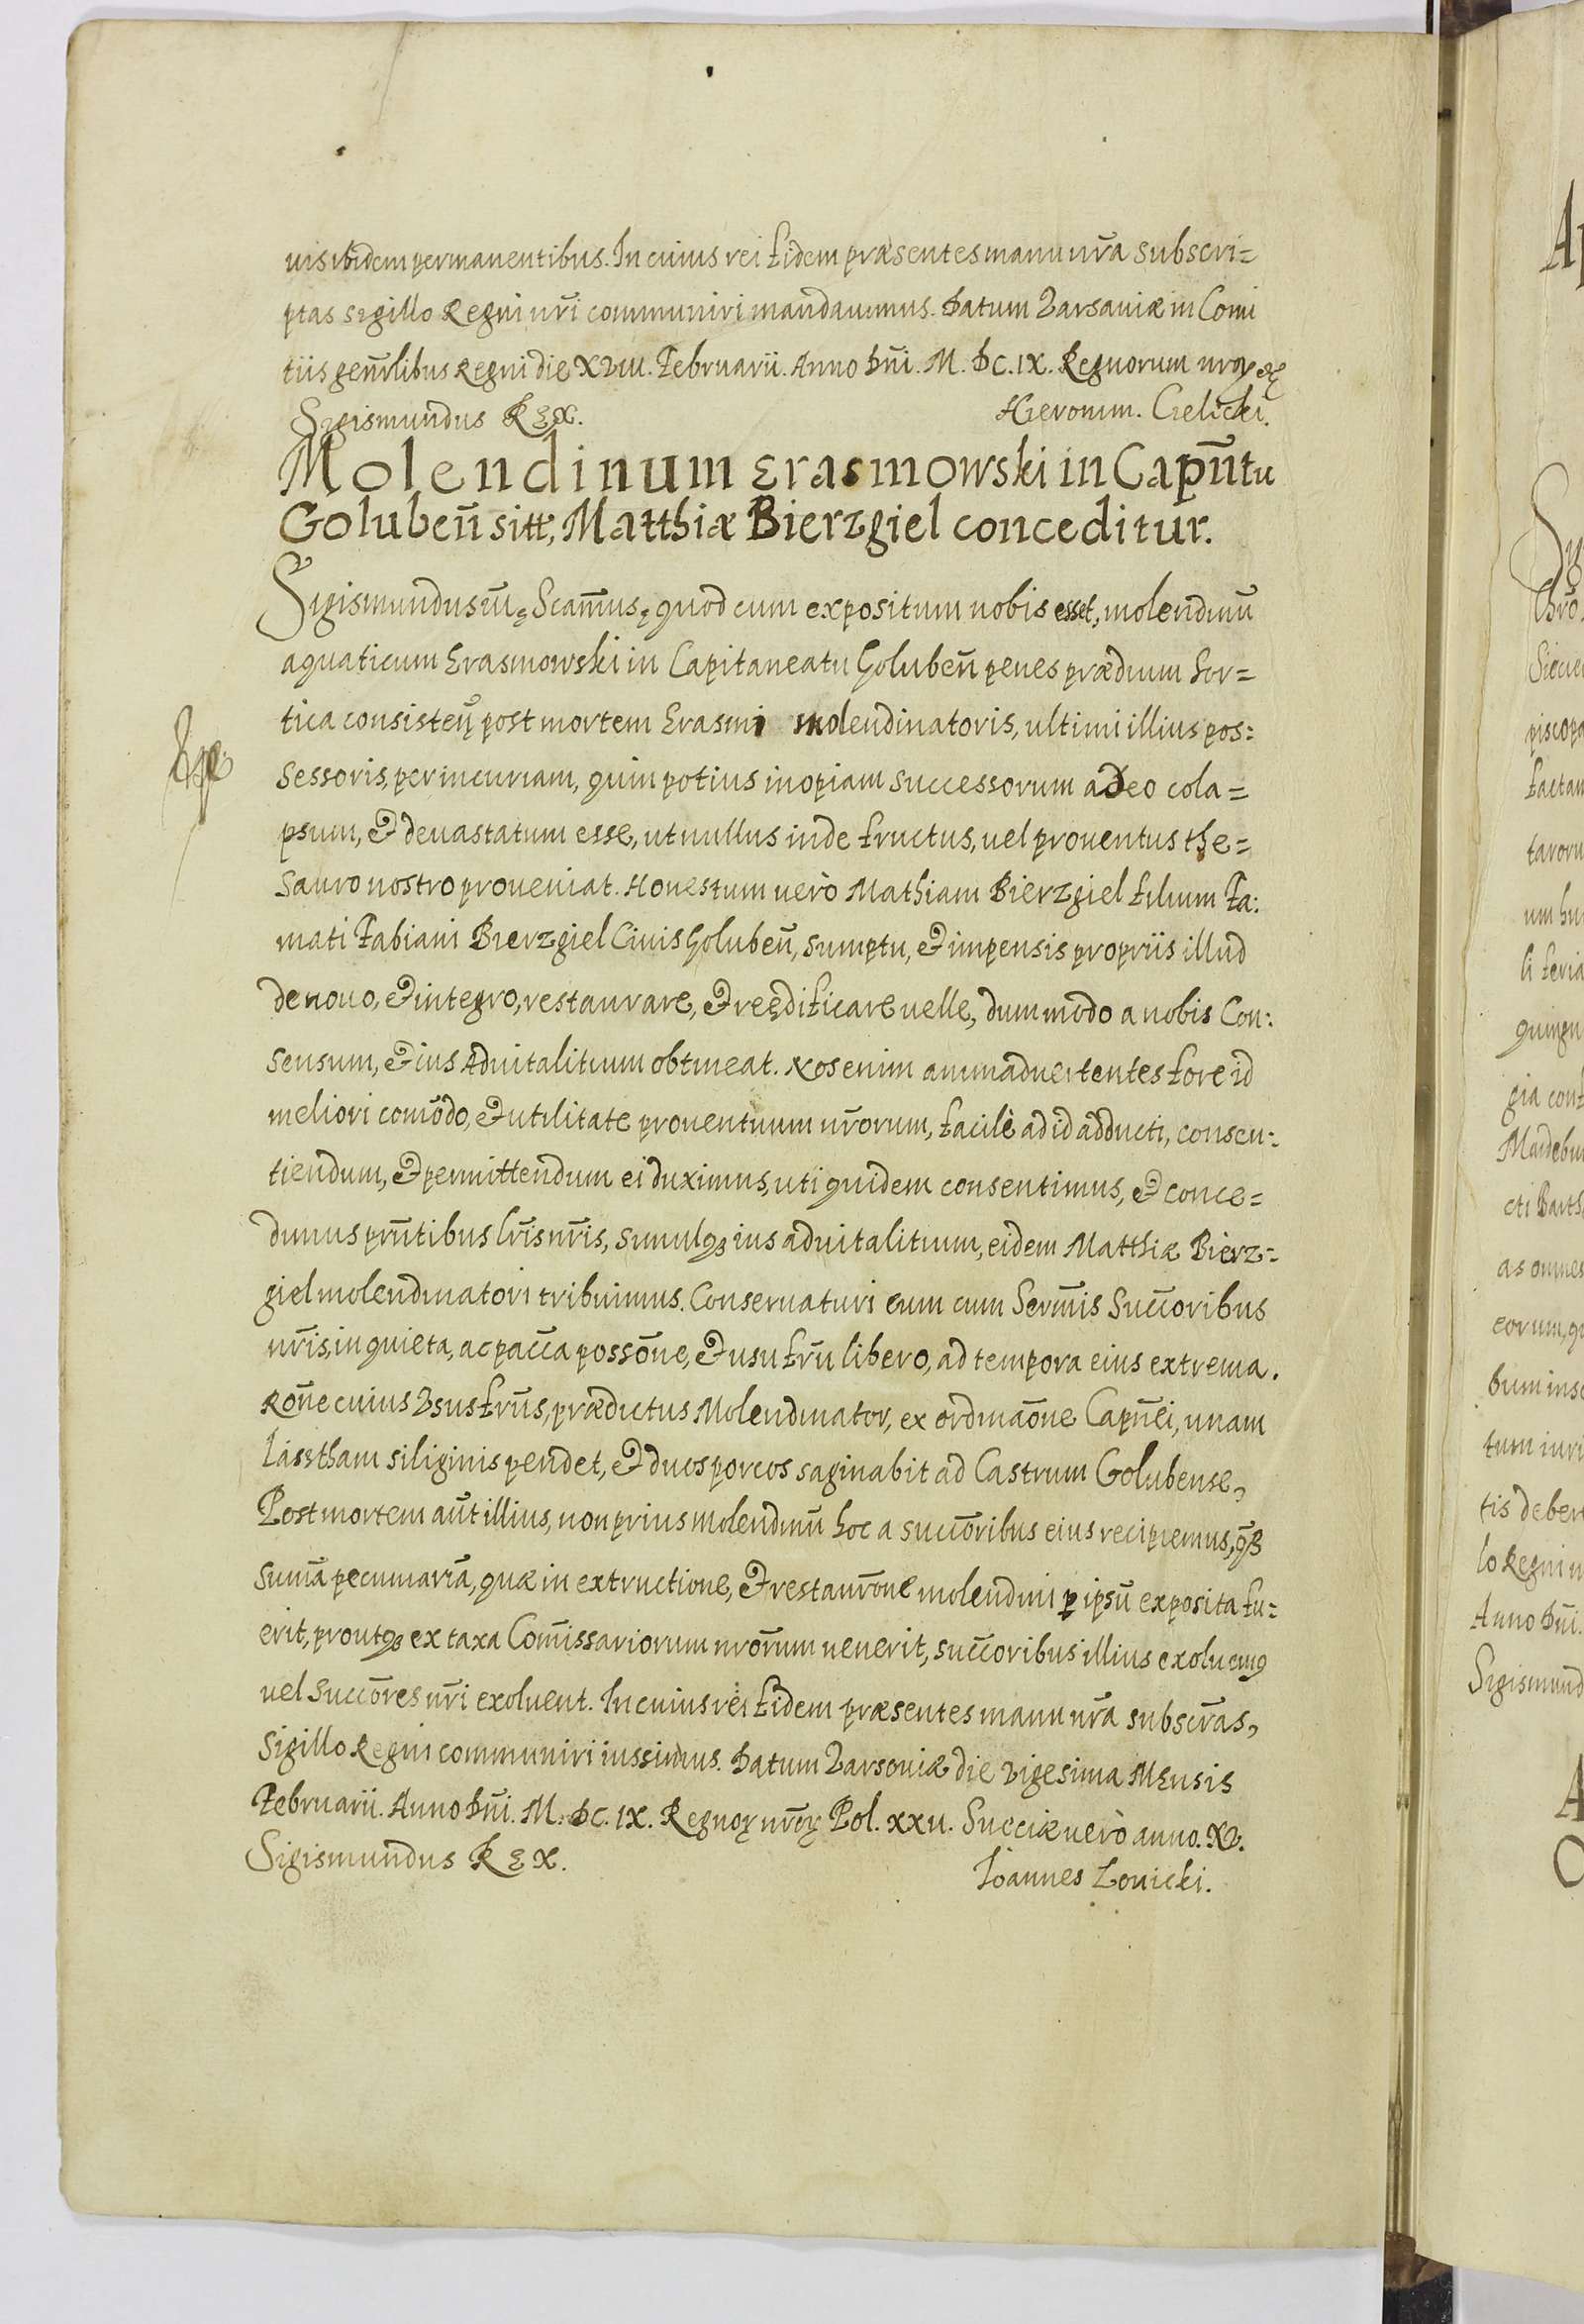 uis ibidem permanentibus. In cuius rei fidem præsentes manu nr̃a subscri=
ptas sigillo Regni nr̃i communiri mandauimus. Datum Varsauiæ in Comi
tiis gen̄rlibus Regni die XVIII. Februarii. Anno Dn̄i. M. DC. IX. Regnorum nrōꝝ ꝛc̄
Sigismundus REX. Hieronim. Cielicki.
Molendinum Erasmowski in Capn̄tu
Goluben̄ sitt, Matthiæ Bierzgiel conceditur.
Sigismundus ut̄ Scam̄us, quod cum expositum nobis esset, molendinū
aquaticum Erasmowski in Capitaneatu Goluben̄ penes prædium For=
tica consisten̄, post mortem Erasmi molendinatoris, ultimi illius pos:
sessoris, per incuriam, quin potius inopiam successorum adeo cola=
psum, & deuastatum esse, ut nullus inde fructus, uel prouentus the=
sauro nostro proueniat. Honestum uerò Mathiam Bierzgiel filium Fa:
mati Fabiani Bierzgiel Ciuis Goluben̄, sumptu, & impensis propriis illud
de nouo, & integro, restaurare, & reędificare uelle, dummodo a nobis Con:
sensum, & ius Aduitalitium obtineat. Nos enim animaduertentes fore id
meliori com̄odo, & utilitate prouentuum nr̃orum, facilè ad id adducti, consen:
tiendum, & permittendum ei duximus, uti quidem consentimus, & conce=
dimus prn̄tibus lr̃is nr̃is, simulqꝫ ius aduitalitium, eidem Matthiæ Bierz=
giel molendinatori tribuimus. Conseruaturi eum cum Serm̄is Succ̄oribus
nr̃is, in quieta, ac pacc̄a possōne, & usufrū libero, ad tempora eius extrema.
Rōne cuius Vsusfrūs, prædictus Molendinator, ex ordinaōne Capn̄ei, unam
Lasstham siliginis pendet, & duos porcos saginabit ad Castrum Golubense,
Post mortem aūt illius, non prius Molendinū hoc a succōribus eius recipiemus, qꝫ̄
sum̄a pecuniaria, quæ in extructione, & restaurōne molendini ꝑ ipsū exposita fu=
erit, proutqꝫ ex taxa Com̄issariorum nrōrum uenerit, succ̄oribus illius exoluemꝯ
uel Succōres nr̃i exoluent. In cuius rei fidem præsentes manu nr̃a subscr̄as,
Sigillo Regni communiri iussimus. Datum Varsouiæ die vigesima Mensis
Februarii. Anno Dn̄i. M. DC. IX. Regnoꝝ nr̃oꝝ Pol. XXII. Sueciæ uerò anno. XV.
Sigismundus REX.
Ioannes Lowicki.